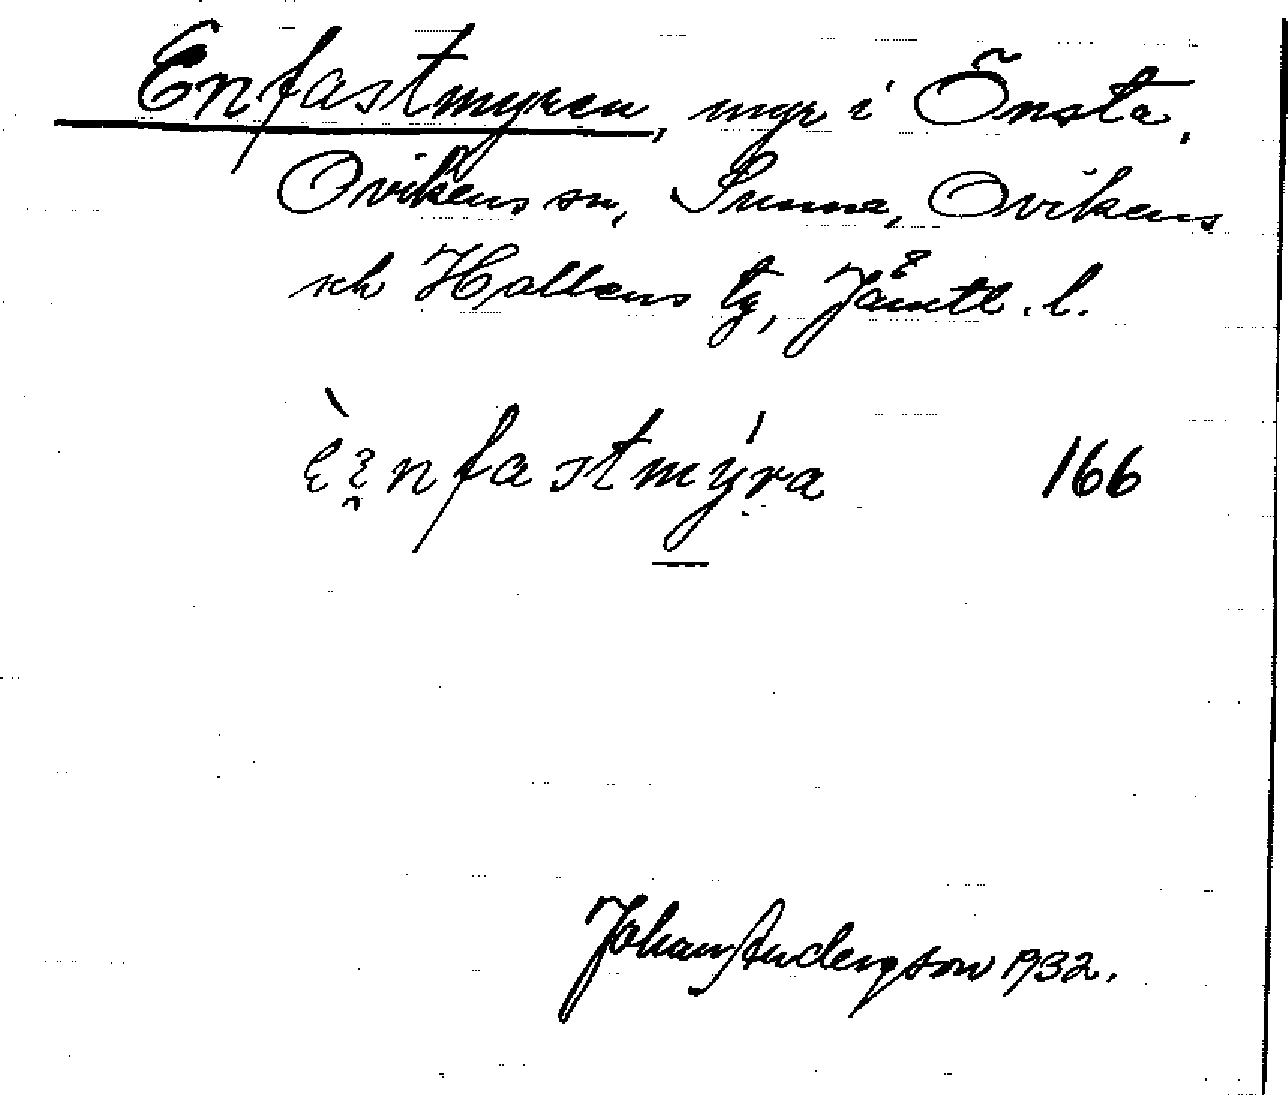 Enfastmyren, myr i Önsta,
Ovikens sn, Sunne, Ovikens
och Hallens tg, Jämtl. l.
èe̯nfastmýra 166
Johan Anderson 1932.